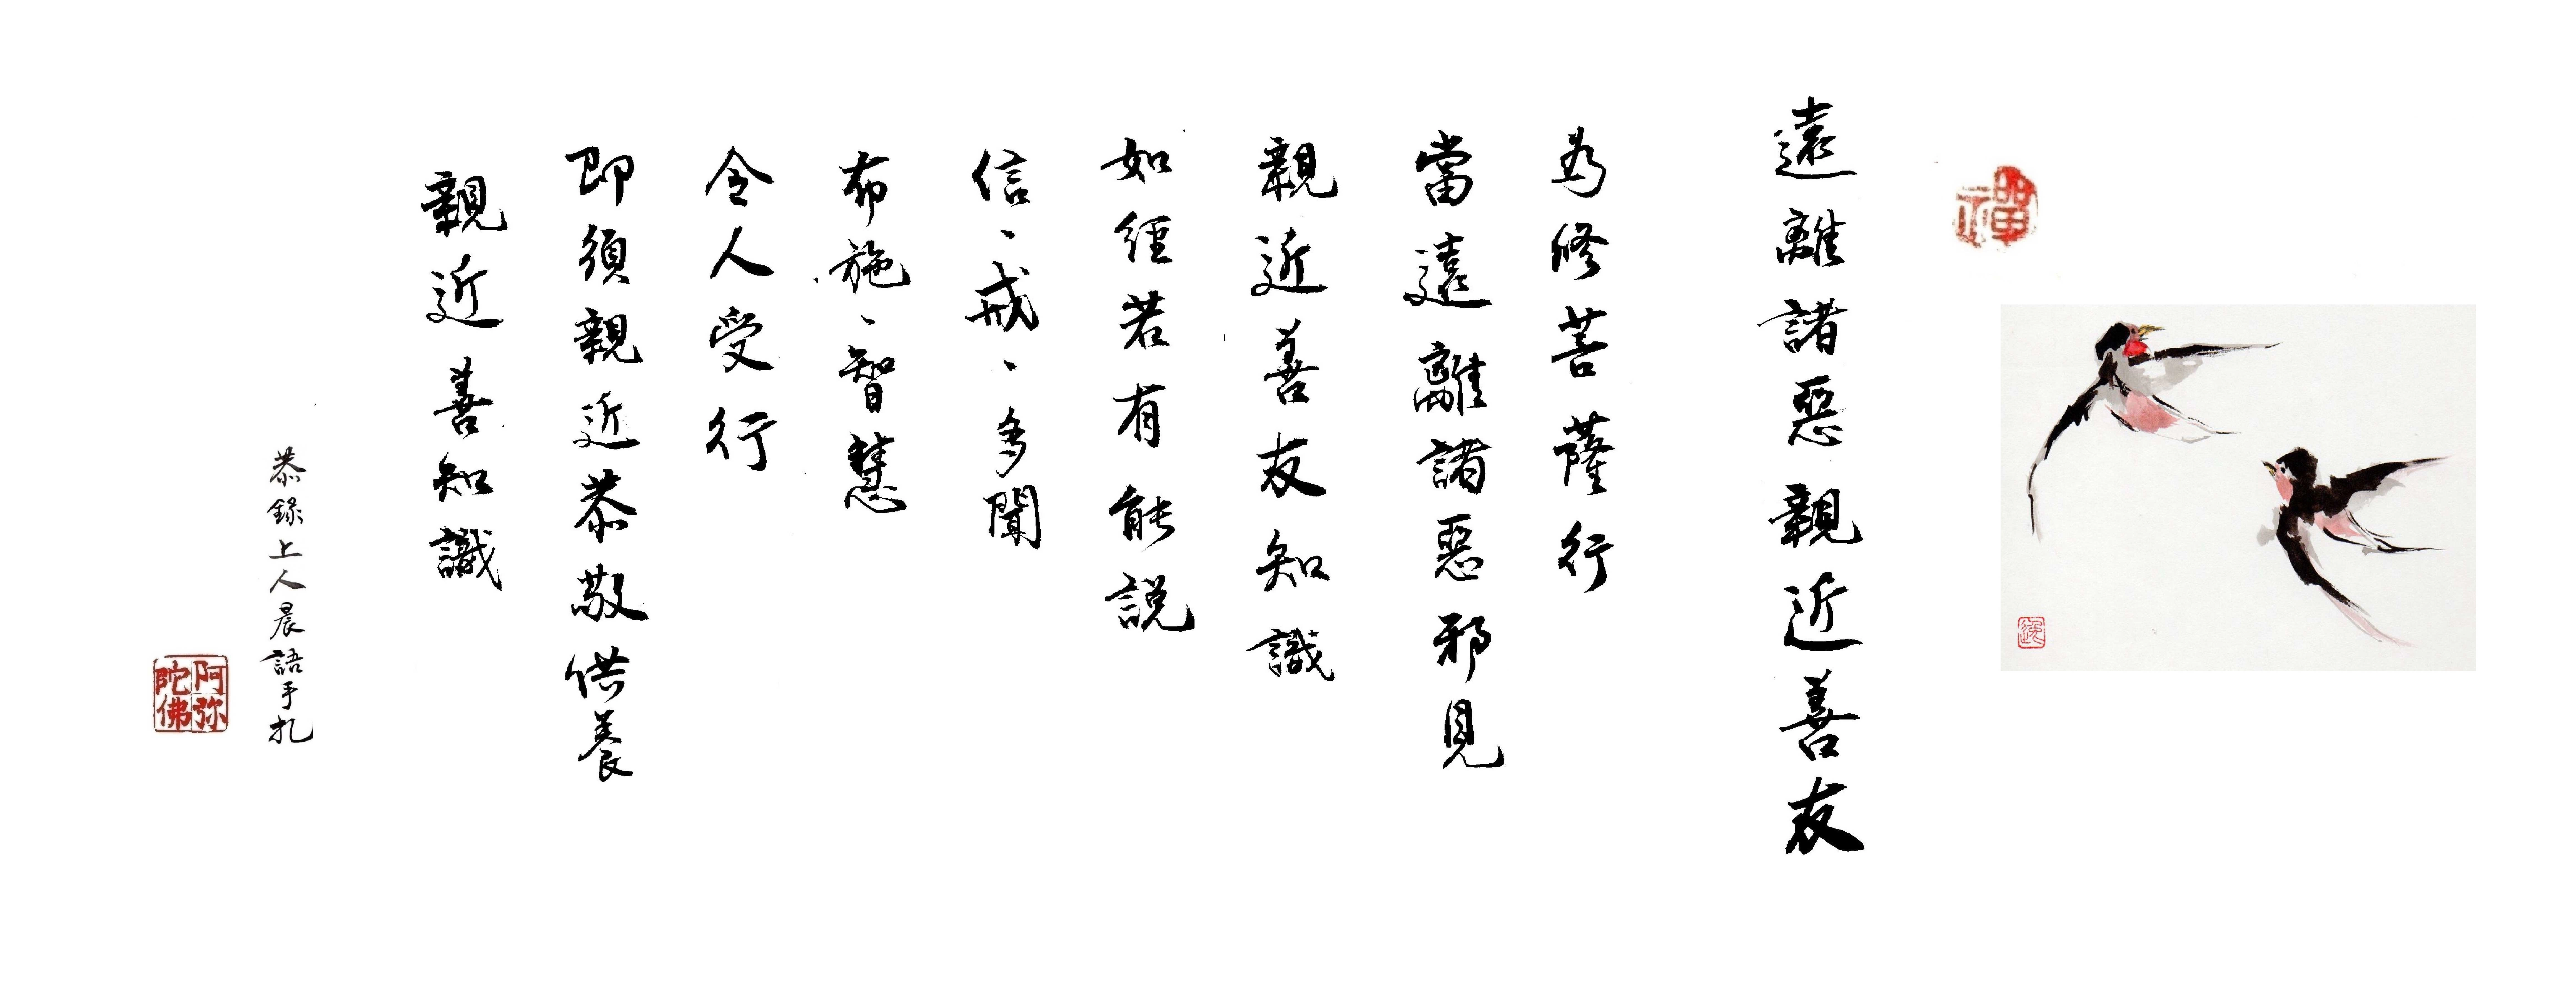 禪
遠離諸惡親近善友
為修菩薩行
當遠離諸惡邪見
親近善友知識
如經若有能説
信、戒、多聞
布施、智慧
令人受行
即須親近恭敬供養
親近善知識
恭錄上人晨語手扎
阿弥
陀佛